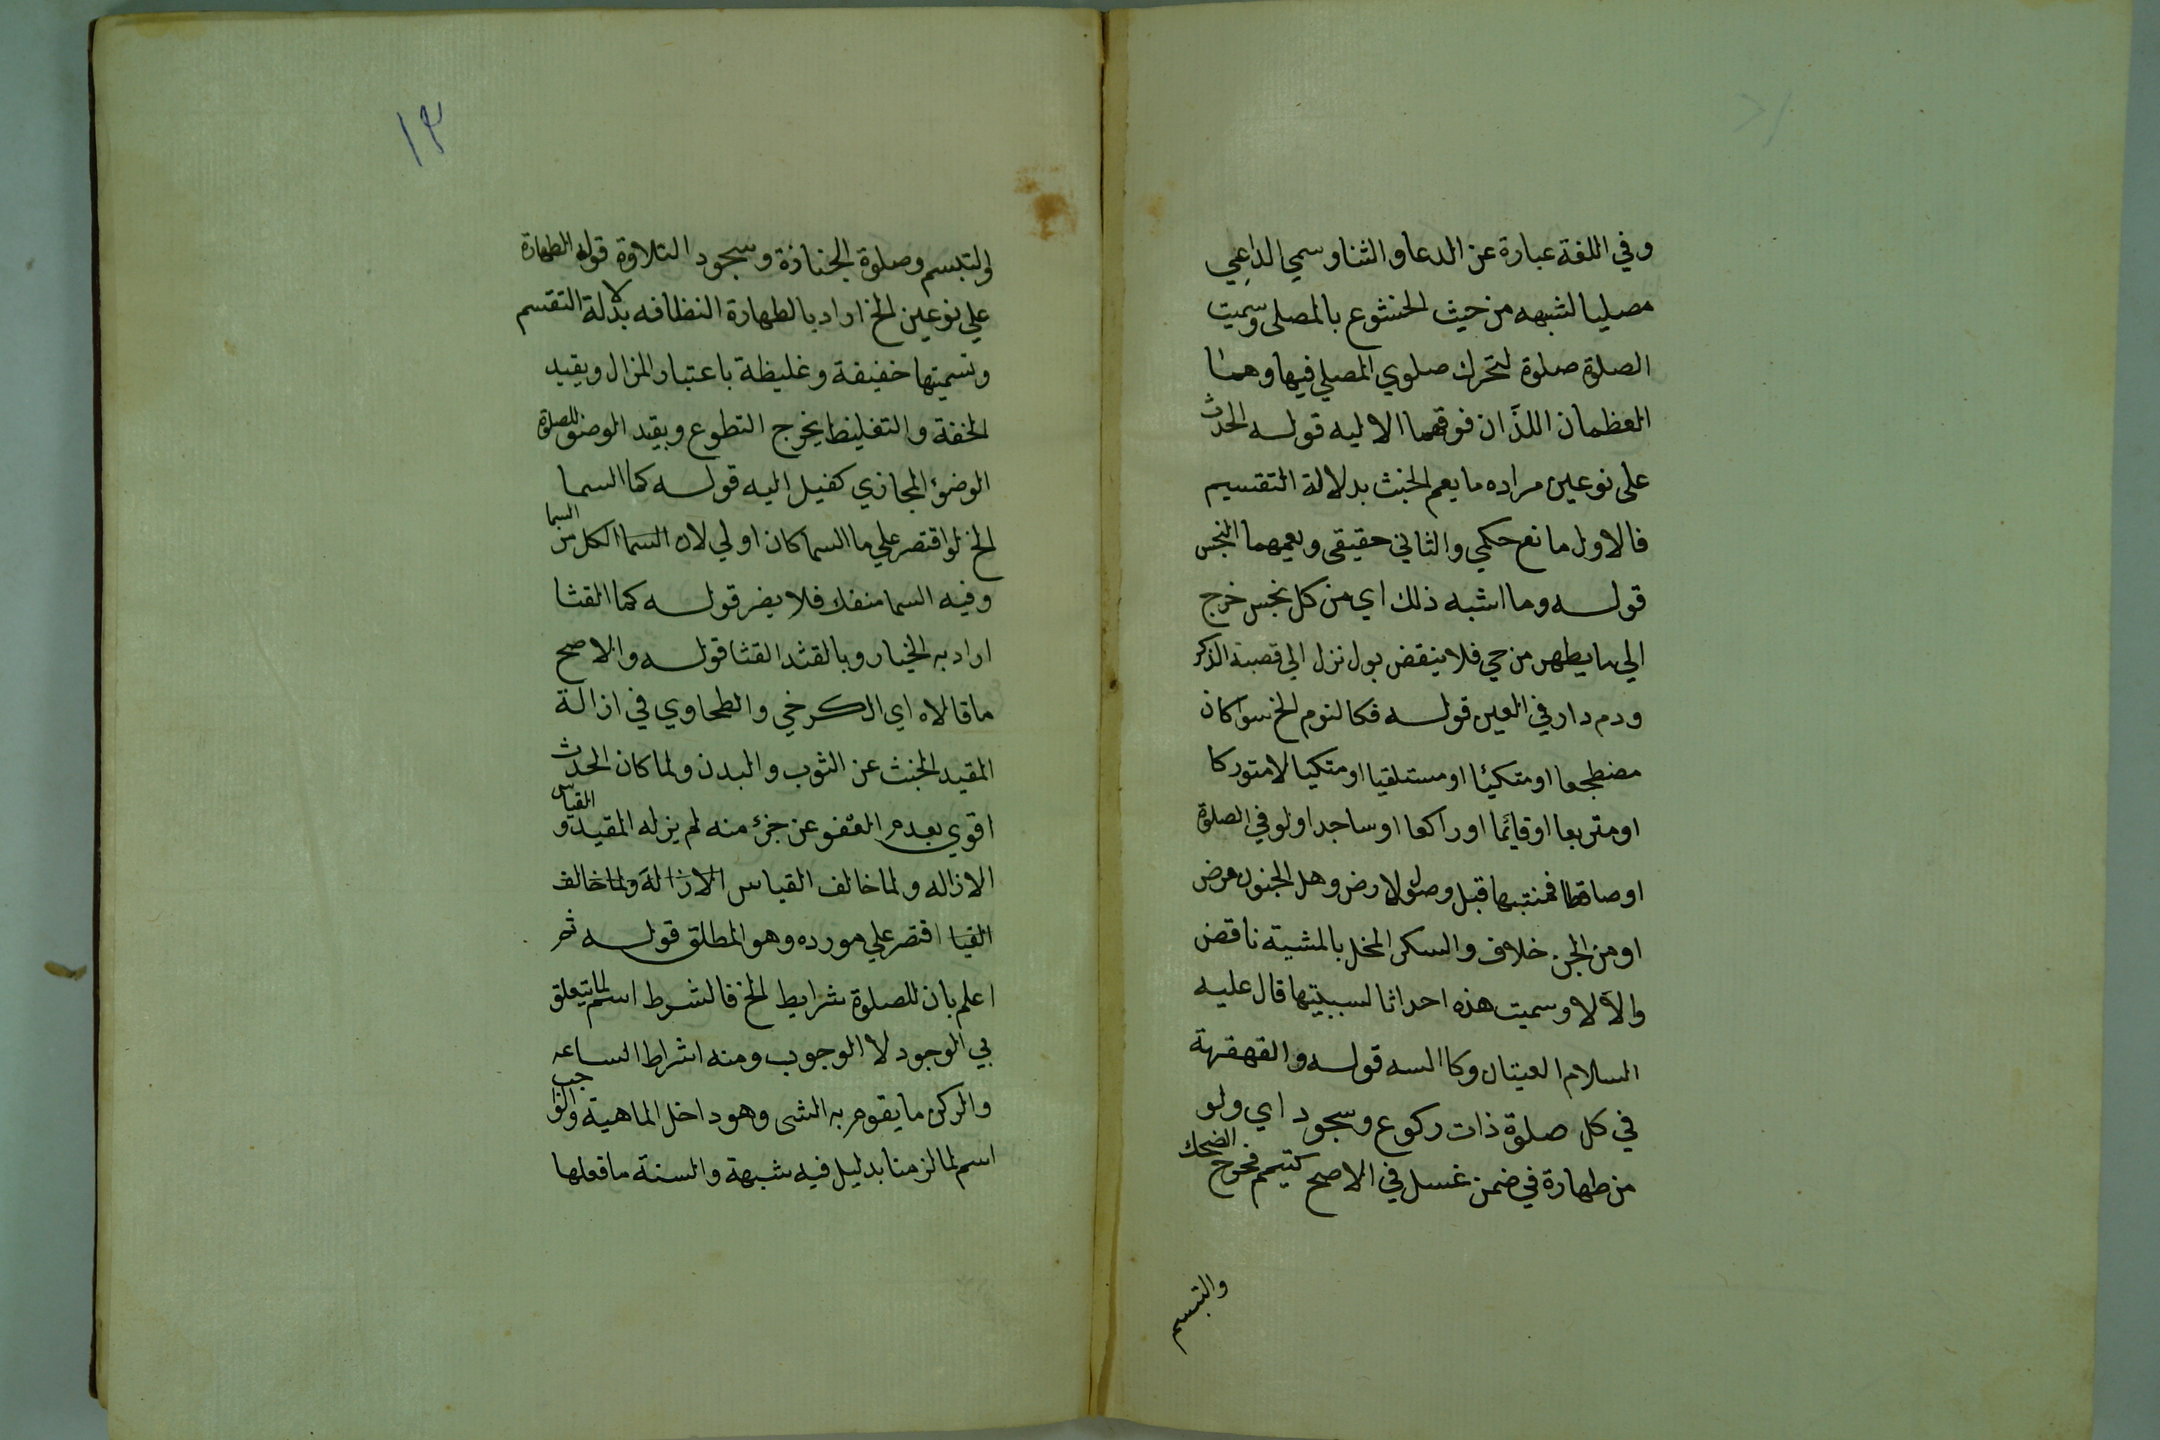 وفي اللغة عبارة عن الدعا والثنا وسمي الداعي
مصليا لشبهه من حيث الخشوع بالمصلى وسميت
الصلوة صلوة لتحرك صلوي المصلي فيها وهما
العظمان اللذان فوقهما الاليه قوله الحدث
على نوعين مراده ما يعم الخبث بدلالة التقسيم
فالاول مانع حكمي والثاني حقيقي ويعمهما النجس
قوله وما اشبه ذلك اي من كل نجس خرج
الي ما يطهر من حي فلا ينقض بول نزل الي قصبة الذكر
ودم دار في العين قوله فكالنوم الخ سوا كان
مضطجعا او متكئا او مستلقيا او متكيا لا متوركا
او متربعا او قائما او راكعا او ساجدا ولو في الصلوة
او فمنتبها قبل وصول لارض وهل الجنون مرض
او من الجن خلاف والسكر المخل بالمشية ناقض
والا لا وسميت هذه احداثا لسببيتها قال عليه
السلام العينان وكاالسه قوله والقهقهة
في كل صلوة ذات ركوع وسجود اي ولو
من طهارة في ضمن غسل في الاصح كتيمم فخرج الضحك
والتبسم
١٣
والتبسم وصلوة الجنازة وسجود التلاوة قوله الطهارة
علي نوعين الخ اراد بالطهارة النظافه بدلالة التقسم
وتسميتها خفيفة وغليظة باعتبار المزال وبقيد
الخفة والتغليظ يخرج التطوع وبقيد الوضو للصلوة
الوضوء المجازي كغسل اليه قوله كما السما
الخ لو اقتصر علي ما السما كان اولي لان السما الكل من السما
وفيه السما منفك فلا يضر قوله كما القثا
اراد به الخيار وبالقثد القثا قوله والاصح
ما قالاه اي الكرخي والطحاوي في ازالة
المقيد الخبث عن الثوب والبدن ولما كان الحدث
اقوي بعدم العفو عن جزء منه لم يزله المقيد والقياس
الازاله ولما خالف القياس الازالة ولما خالف
القيا اقتصر علي مورده وهو المطلق قوله ثم
اعلم بان للصلوة شرايط الخ فالشرط اسم لما يتعلق
بي الوجود لا الوجوب ومنه اشراط الساعه
والركن ما يقوم به الشي وهو داخل الماهية والواجب
اسم لما لزمنا بدليل فيه شبهة والسنة ما فعلها